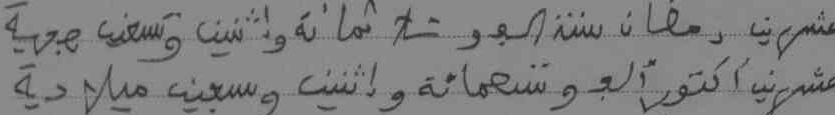 عشرين رمضان سنة الف و ثلاثمائة واثنين وتسعين هجرية
عشرين أكتوبر ألف وتسعمائة واثنين وسبعين ميلادية